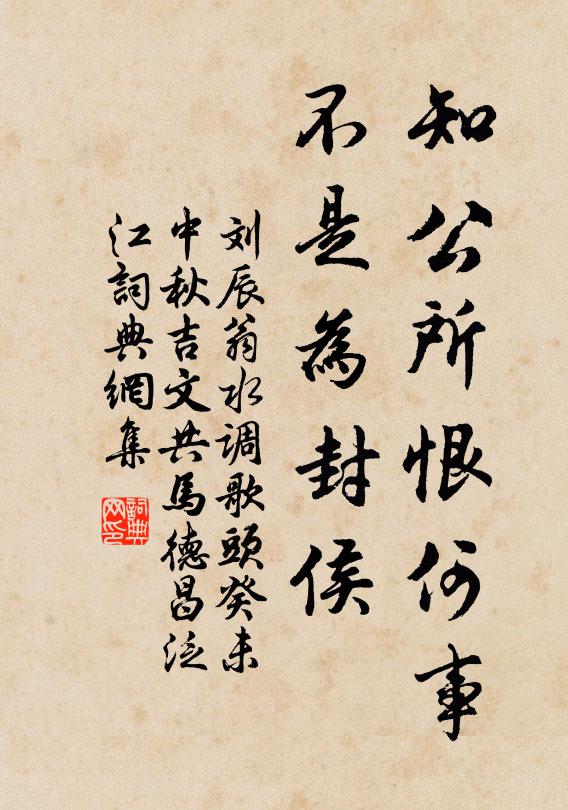 知公所恨何事
不是為封侯
刘辰翁水调歌頭癸未
中秋吉文共馬德昌泛
江詞典網集
詞典
网印